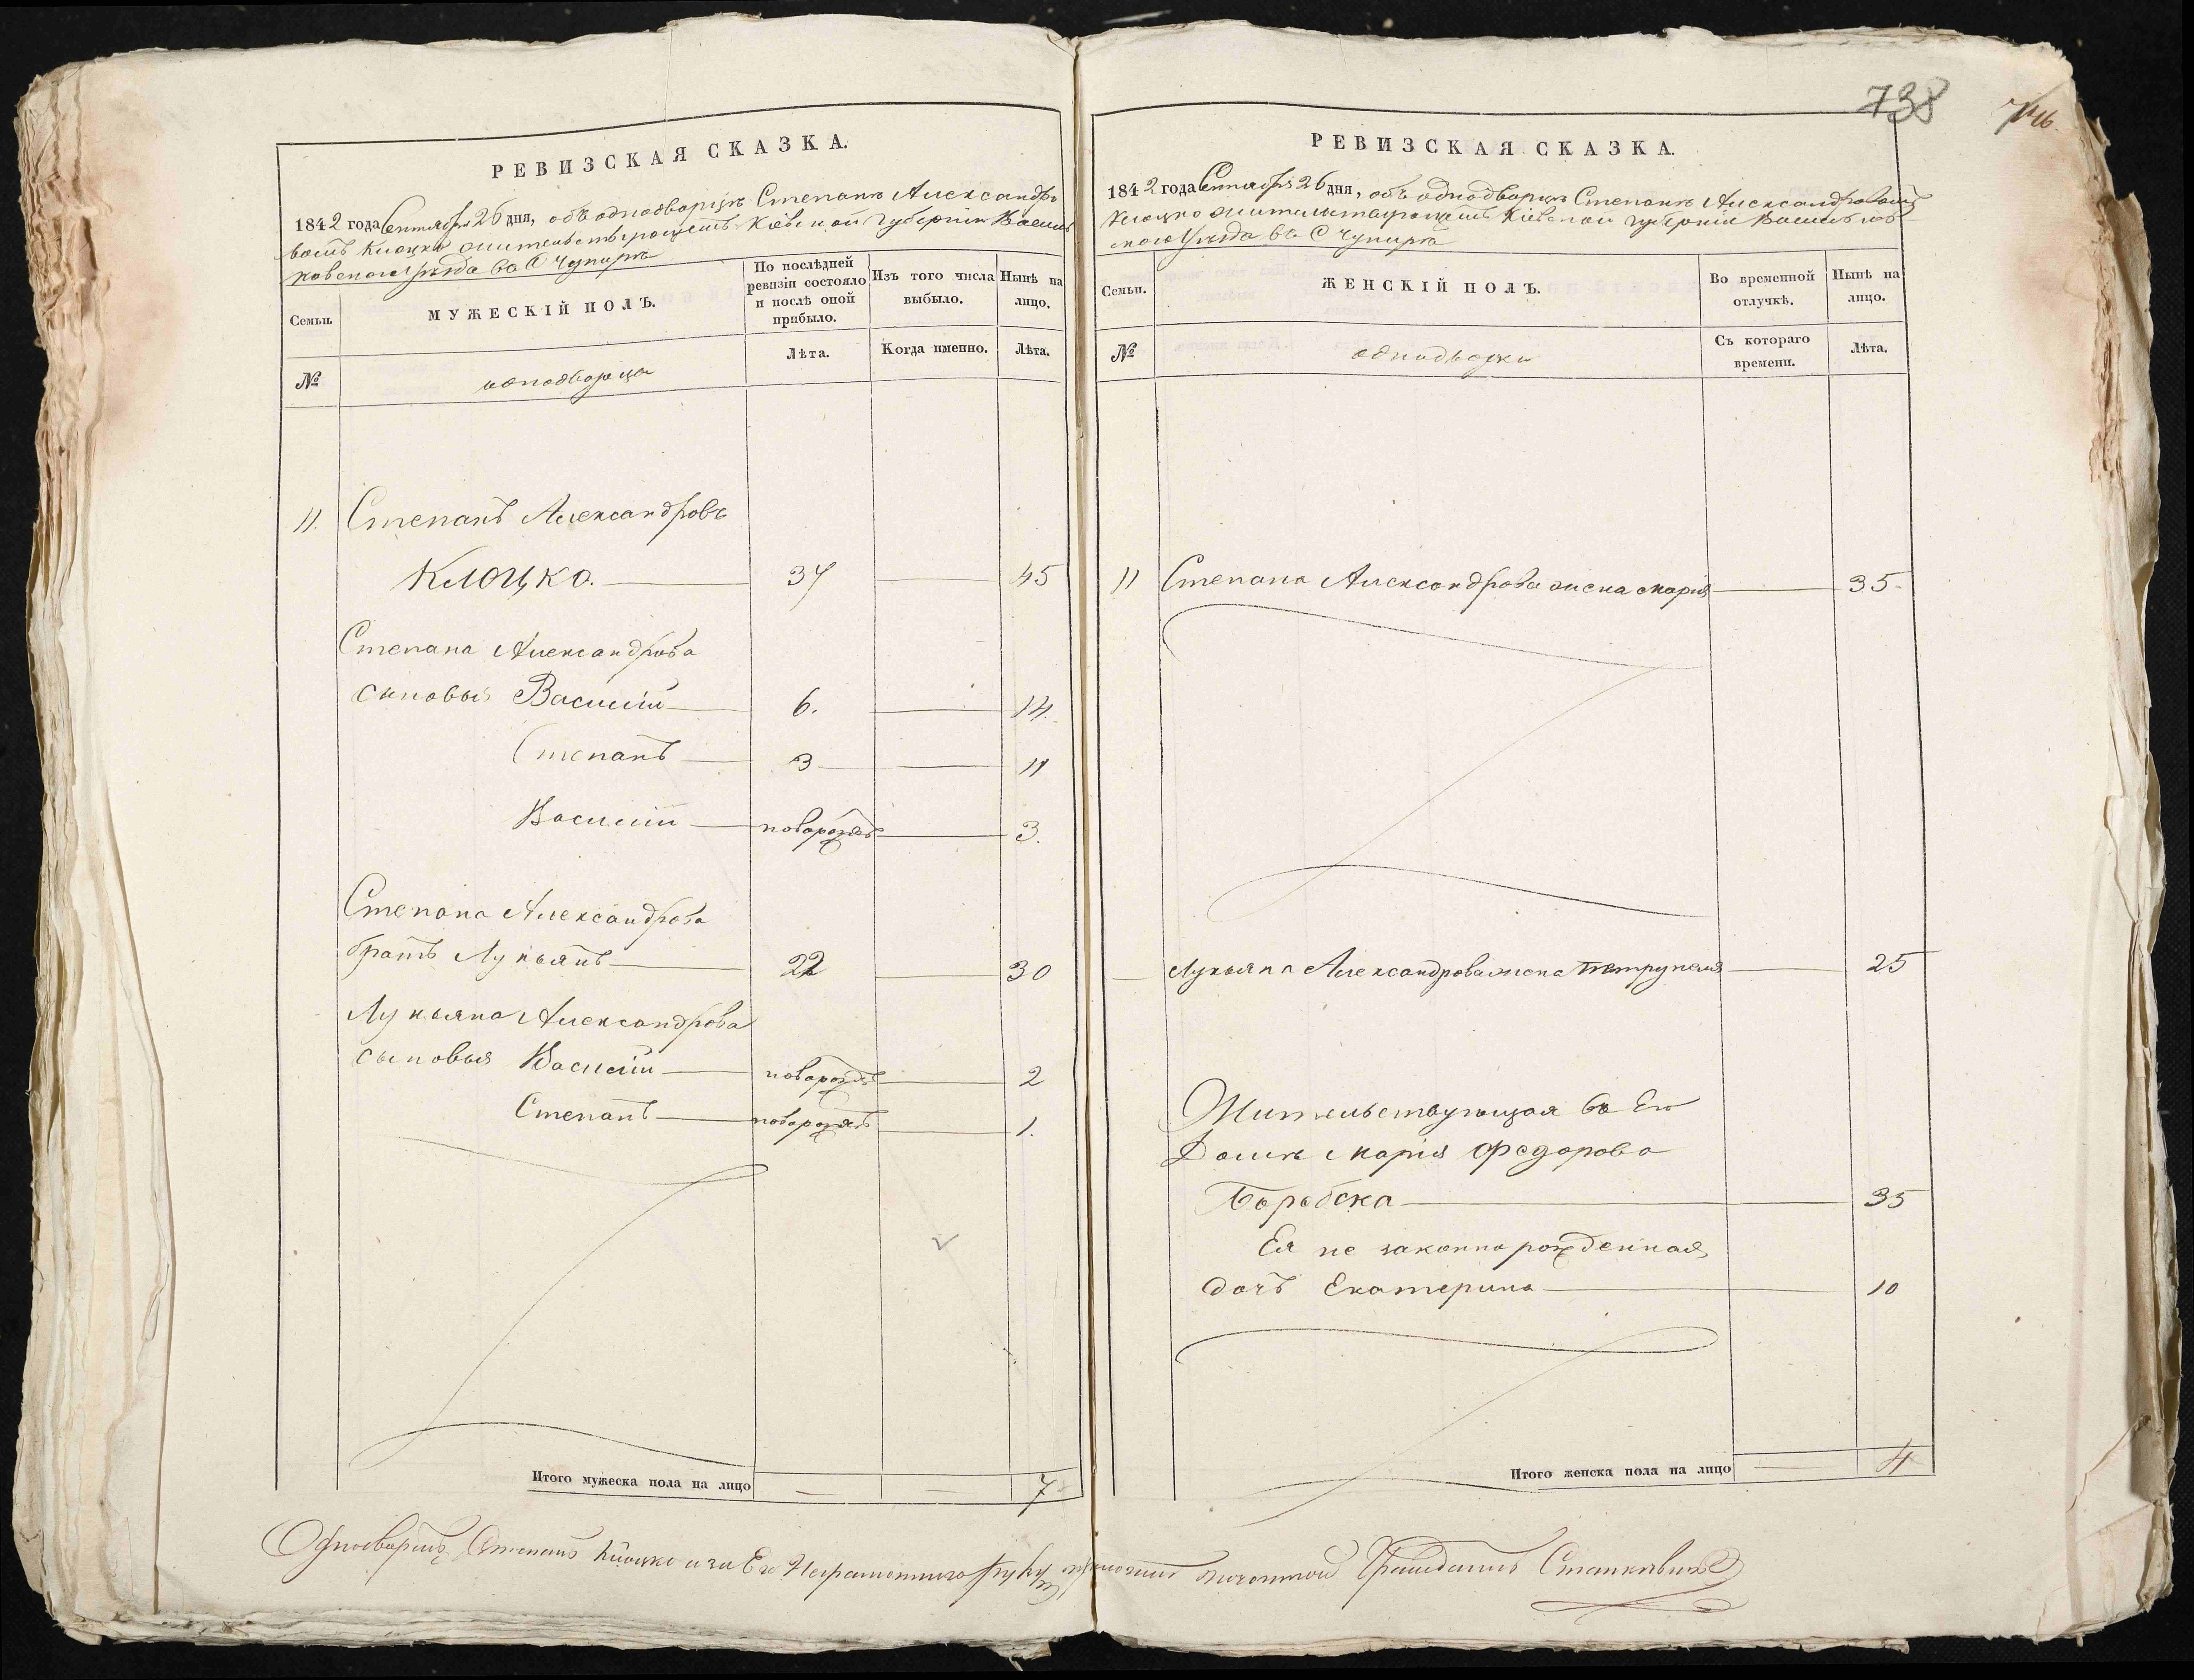 738
РЕВИЗСКАЯ СКАЗКА.
1842 года Сентября 26 дня, объ однодворцѣ Степанѣ Александро
вомъ Клоцко жительствующемъ Кіевской Губерніи Василь
ковскаго Уѣзда въ С Чупирѣ
Семьи.
МУЖЕСКІЙ ПОЛЪ.
По послѣдней ревизіи состояло и послѣ оной прибыло.
Изъ того числа выбыло.
Нынѣ на лицо.
№
однодворцы
Лѣта.
Когда именно.
Лѣта.
11. Степанъ Александровъ
Клоцко. 37 45
Степана Александрова
сыновья Василій 6. 14.
Степанъ 3 11
Василій новорожд 3.
Степана Александрова
братъ Лукьянъ 22 30
Лукьяна Александрова
сыновья Василій новорожд 2
Степанъ новорожд 1.
Итого мужеска пола на лицо 7
РЕВИЗСКАЯ СКАЗКА.
1842 года Сентября 26 дня, объ однодворцѣ Степанѣ Александровомъ
Клоцко жительствующемъ Кіевской губерніи Васильков
скаго Уѣзда въ С Чупирѣ
Семьи.
ЖЕНСКІЙ ПОЛЪ.
Во временной отлучкѣ.
Нынѣ на лицо.
№
однодворки
Съ котораго времени.
Лѣта.
11 Степана Александрова жена Марія 35
Лукьяна Александрова жена Петрунеля 25
Жительствующая въ Ею
Домѣ Марія Федорова
35
Ея не законно рожденная
дочь Екатерина 10
Итого женска пола на лицо 4
Однодворецъ Степанъ Клоцко а за Его Неграмотнаго руку приложилъ почетной Гражданинъ Станкевичъ